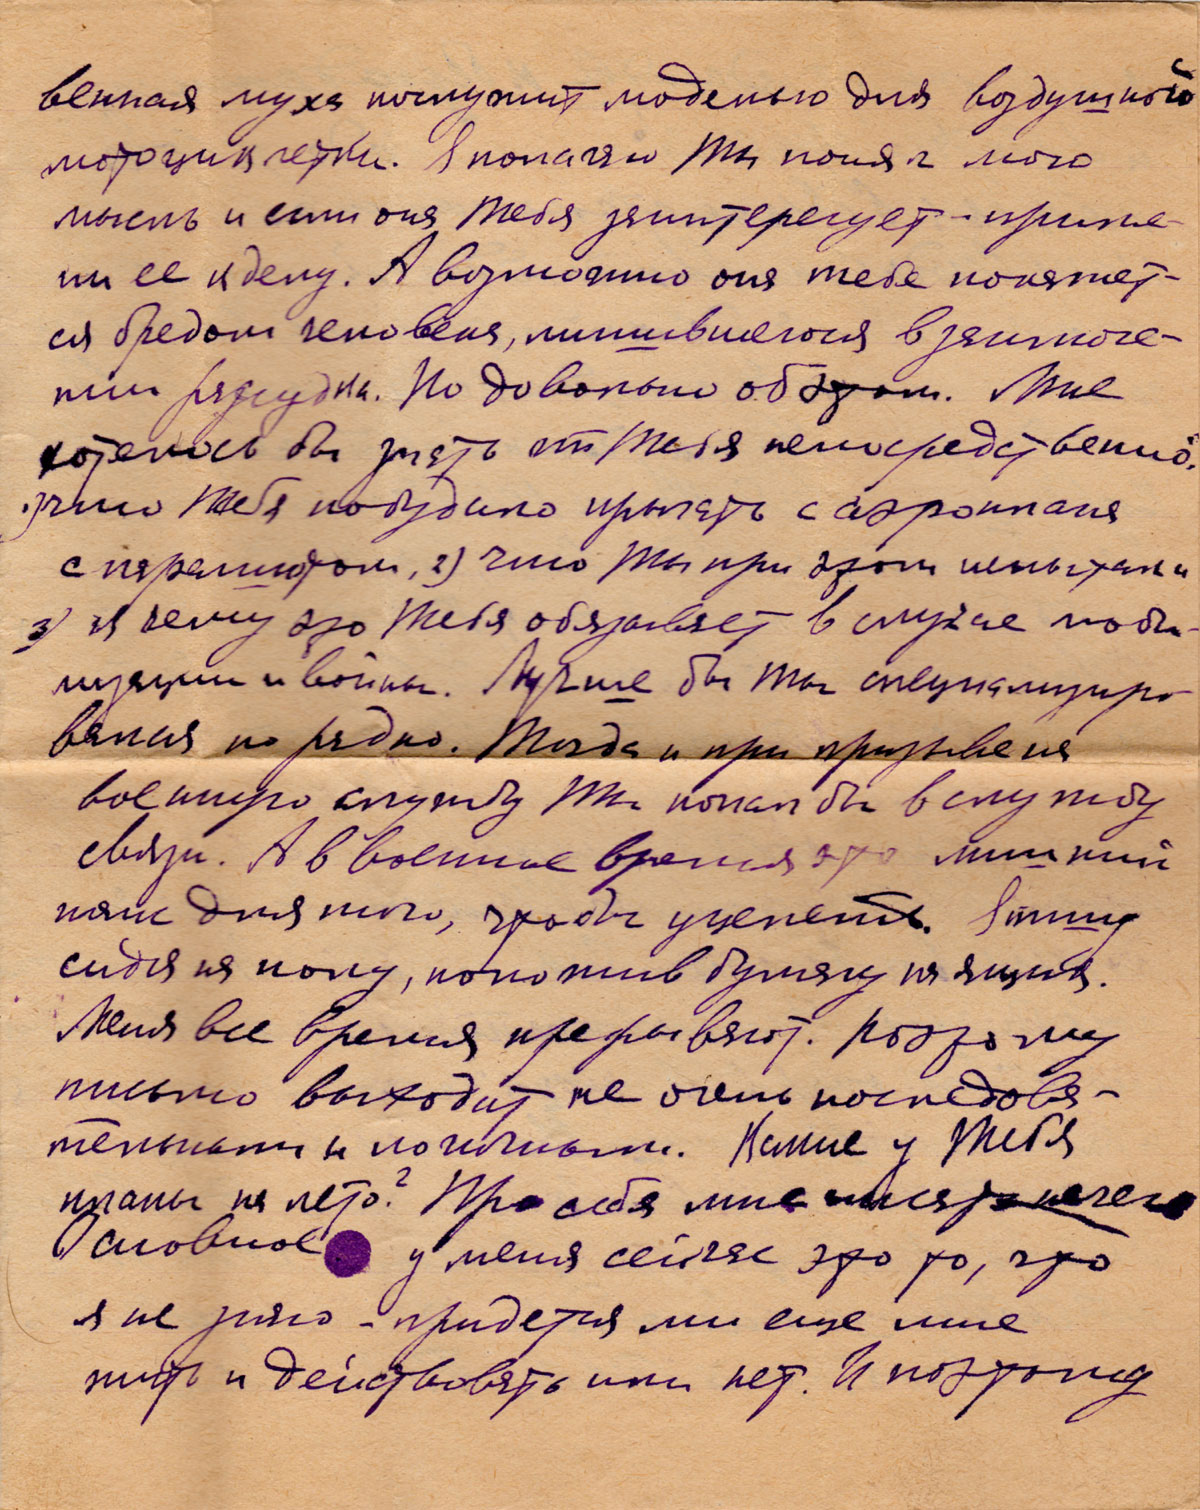 венная муха послужит моделью для воздушного
мотоциклетки. Я полагаю Ты понял мою
мысль и если она Тебя заинтересует - приме-
ни ее к делу. А возможно она тебе покажет-
ся бредом человека, лишившегося в заключе-
нии рассудка. Но довольно об этом. Мне
хотелось бы знать от Тебя непосредственно,
1) что Тебя побудило прыгать с аэроплана
с парашютом, 2) что Ты при этом испытал и
3) к чему это Тебя обязывает в случае моби-
лизации и войны. Лучше бы Ты специализиро-
вался по радио. Тогда и при призыве на
военную службу Ты попал бы в службу
связи. А в военное время это лишний
шанс для того, чтобы уцелеть. Я пишу
сидя на полу, положив бумагу на ящик.
Меня все время прерывают. Поэтому
письмо выходит не очень последова-
тельным и логичным. Какие у Тебя
планы на лето? Про себя мне писать нечего
Основное у меня сейчас это то, что
я не знаю - придется ли еще мне
жить и действовать или нет. И поэтому